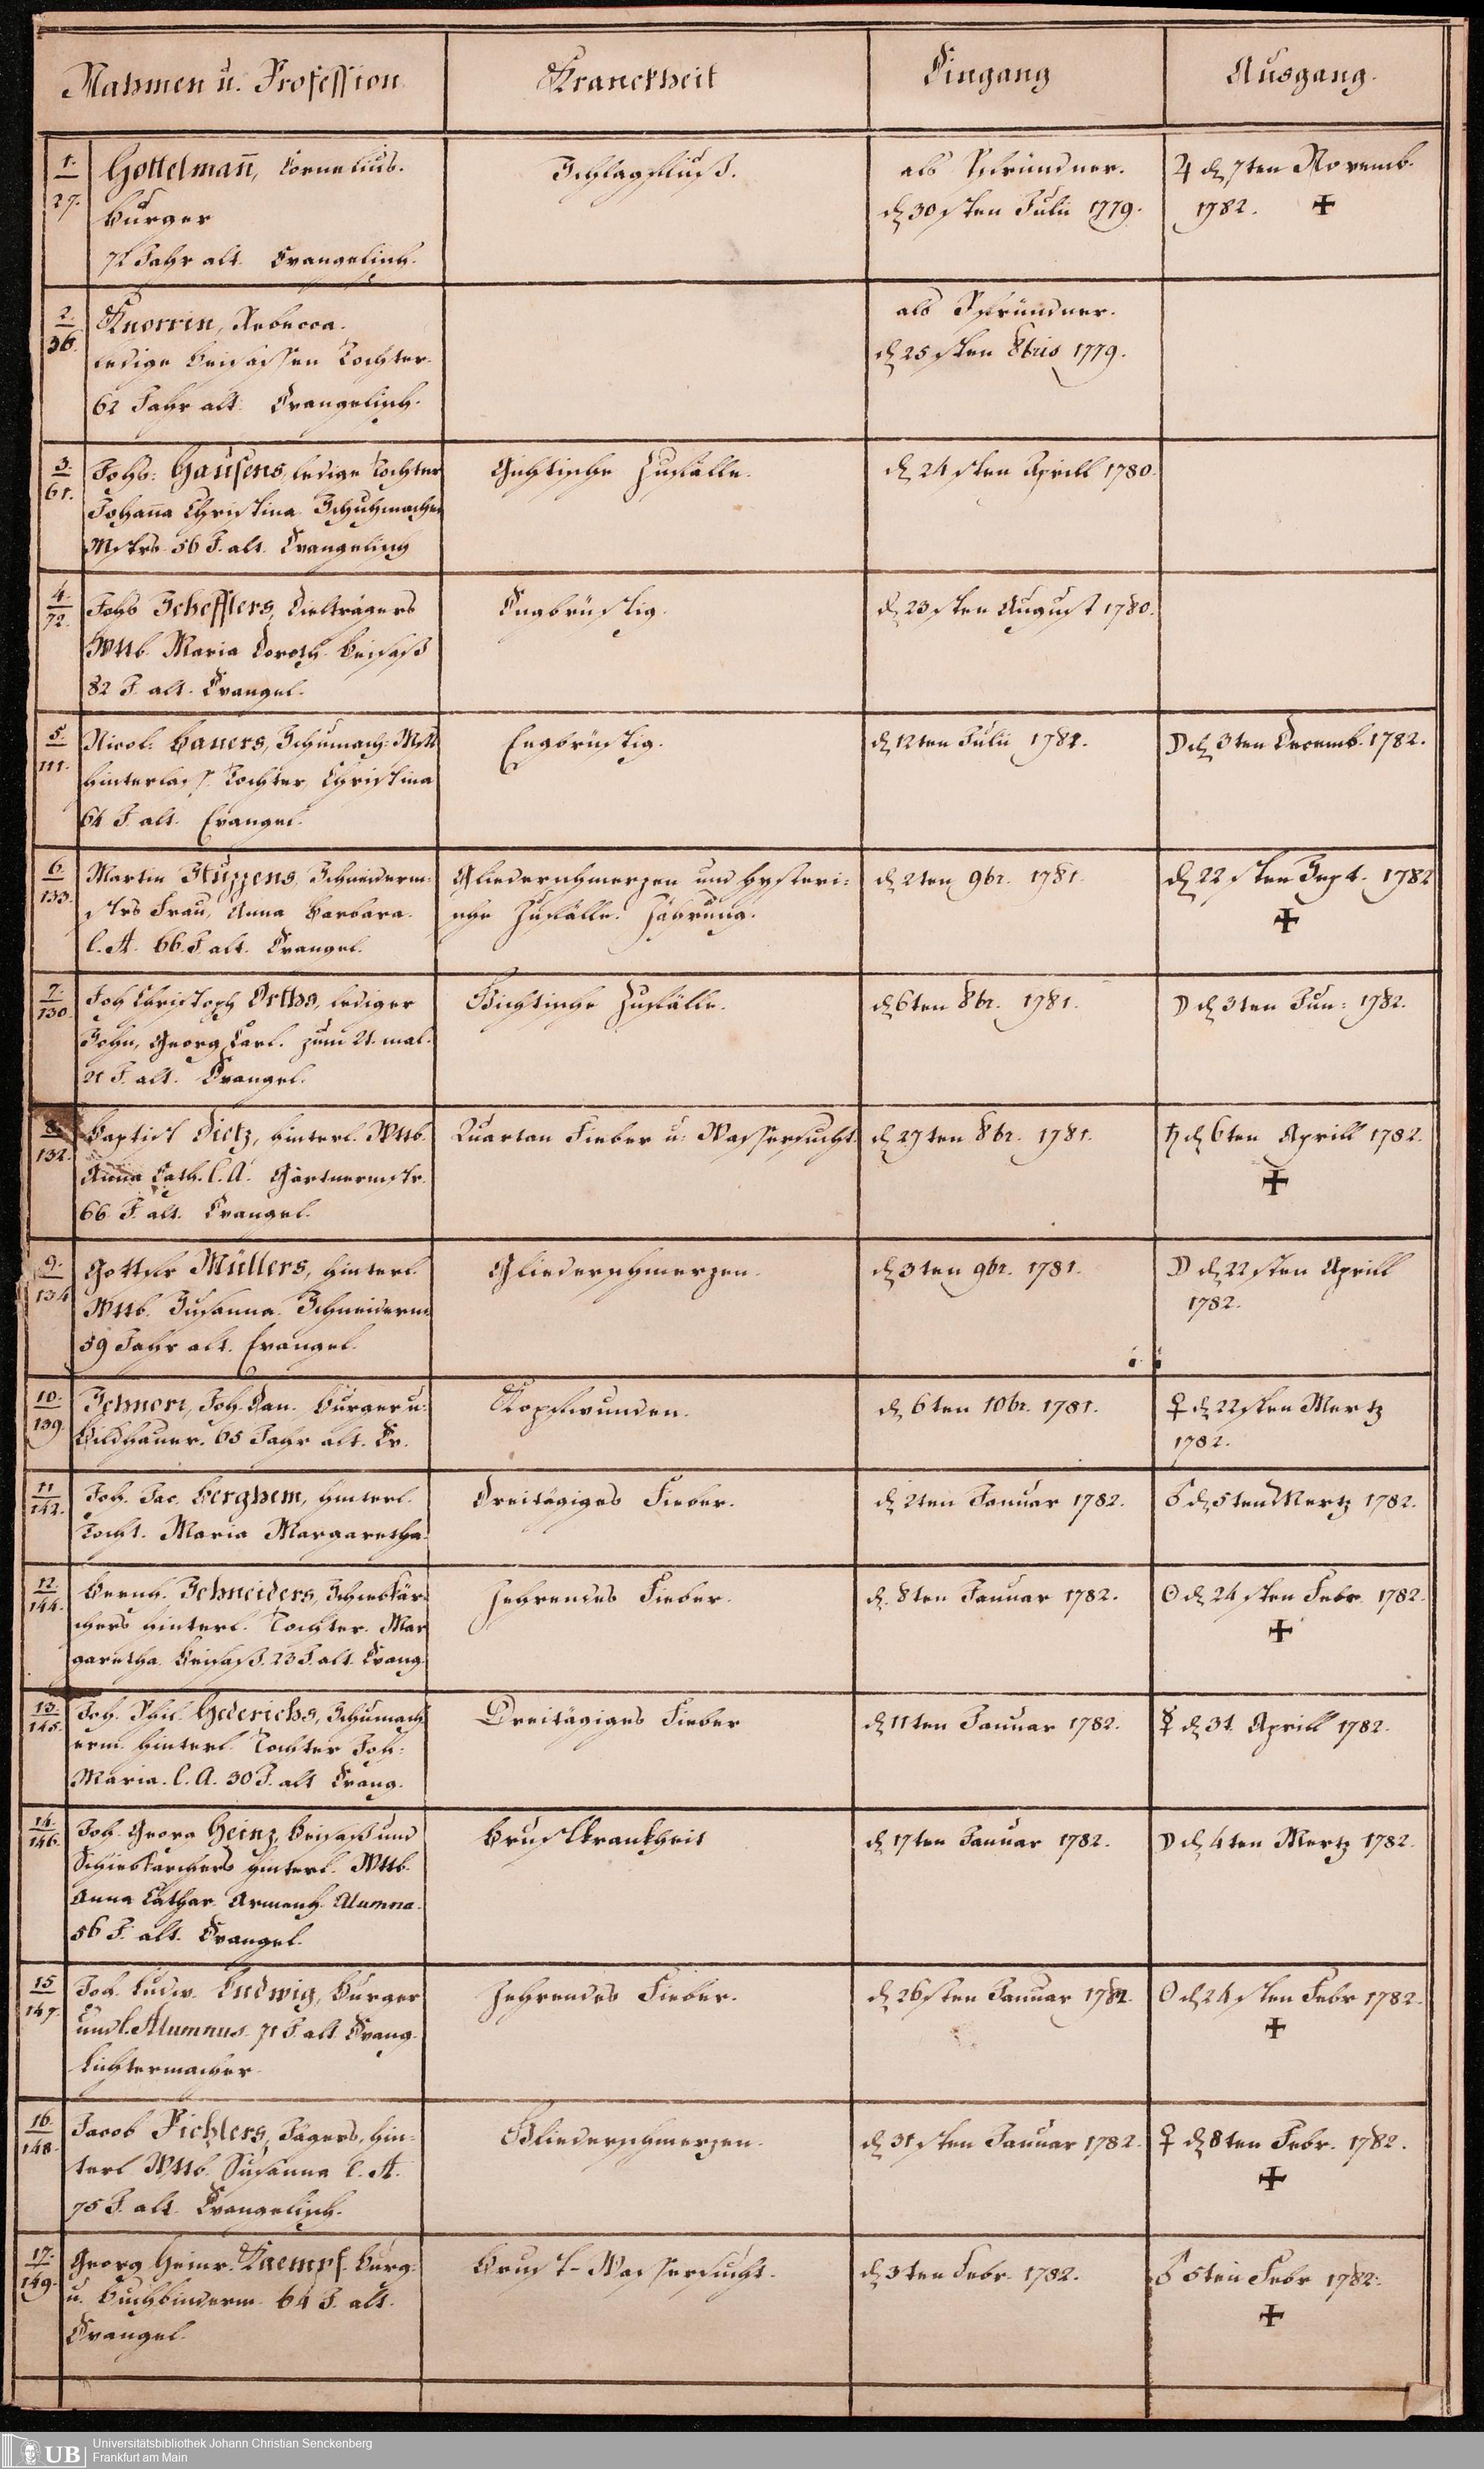 Nahmen u. Profession
Kranckheit
Eingang
Ausgang.
1.
27.
Gottelmañ, Cornelius.
Burger
71 Jahr alt. Evangelisch.
Schlagfluß.
als Pfründner.
d. 30sten Julii 1779.
♃ d. 7ten Novemb.
1782. ✝
2.
36.
Knorrin, Rebecca.
ledige Beisassen Tochter.
62 Jahr alt. Evangelisch.
als Pfründner.
d. 25sten 8bris 1779.
3.
61.
Johs: Hausens, ledige Tochter
Johaña Christina Schuhmacher
Mstrs. 56 J. alt. Evangelisch
Gichtische Zufälle.
d. 24sten Aprill 1780.
4.
72.
Johs Schefflers, Dielträgers
Wttb. Maria Doroth. Beisaß
82 J. alt. Evangel.
Engbrüstig.
d. 23sten August 1780.
5.
111.
Nicol: Bauers, Schumach: Mstr
hinterlass. Tochter Christina
64 J. alt. Evangel.
Engbrüstig.
d. 12ten Julii 1781.
☽ d. 3ten Decemb. 1782.
6.
133.
Martin Stuzzens, Schneiderm:
strs Frau, Anna Barbara.
l. A. 66. J. alt. Evangel.
Gliederschmerzen und hysteri:
sche Zufälle. Zährung.
d. 2ten 9br. 1781.
d. 22sten Sept. 1782
✝
7.
130.
Joh Christoph Orths, lediger
Sohn, Georg Carl. zum 21. mal.
21 J. alt. Evangel.
Gichtische Zufälle.
d. 6ten 8br. 1781.
☽ d. 3ten Jun: 1782.
8.
132.
Baptist Dietz, hinterl. Wttb.
Anna Cath. l. A. Gärtnermstr.
66 J. alt. Evangel.
Quartan Fieber u: Wassersucht.
d. 27ten 8br. 1781.
♄ d. 6ten Aprill 1782.
✝
9.
134
Gottfr Müllers, hinterl.
Wttb. Susanna. Schneiderm
59 Jahr alt. Evangel.
Gliederschmerzen.
d. 3ten 9br. 1781.
☽ d. 22sten Aprill
1782.
10.
139.
Schnorr, Joh. Dan. Burger u:
Bildhauer. 65 Jahr alt. Ev.
Kopfwunden.
d. 6ten 10br. 1781.
♀ d. 22sten Mertz
1782.
11
142.
Joh. Jac. Berghem, hinterl.
Tocht. Maria Margaretha.
Dreitägiges Fieber.
d. 2ten Januar 1782.
♂ d. 5ten Mertz 1782.
12.
144.
Bernh. Schneiders, Schiebkär
chers hinterl. Tochter. Mar
garetha. Beisaß. 23 J. alt. Evang.
Zehrendes Fieber.
d. 8ten Januar 1782.
☉ d. 24sten Febr. 1782.
✝
13.
145.
Joh. Phil. Hederichs, Schumach
erm. hinterl. Tochter Joh:
Maria. l. A. 30 J. alt Evang.
Dreitägiges Fieber
d. 11ten Januar 1782.
☿ d. 3t. Aprill 1782.
14.
146.
Joh. Georg Heinz, Beisaß und
Schiebkärchers hinterl. Wttb.
Anna Cathar. Armenh. Alumna.
56 J. alt. Evangel.
Brustkrankheit
d. 17ten Januar 1782.
☽ d. 4ten Mertz 1782.
15
147.
Joh. Ludw. Ludwig, Burger
und l. Alumnus. 71 J. alt. Evang.
Lichtermacher.
Zehrendes Fieber.
d. 26sten Januar 1782.
☉ d. 24sten Febr 1782.
✝
16.
148.
Jacob Pichlers, Jägers, hin:
terl Wttb. Susanna l. A.
75 J. alt. Evangelisch.
Gliederschmerzen.
d. 31sten Januar 1782.
♀ d. 8ten Febr. 1782.
✝
17.
149.
Georg Heinr. Kaempf. Burg:
u. Buchbinderm. 64 J. alt.
Evangel.
Brust-Wassersucht.
d. 3ten Febr. 1782.
♂ 5ten Febr 1782:
✝
UB
Universitätsbibliothek Johann Christian Senckenberg
Frankfurt am Main